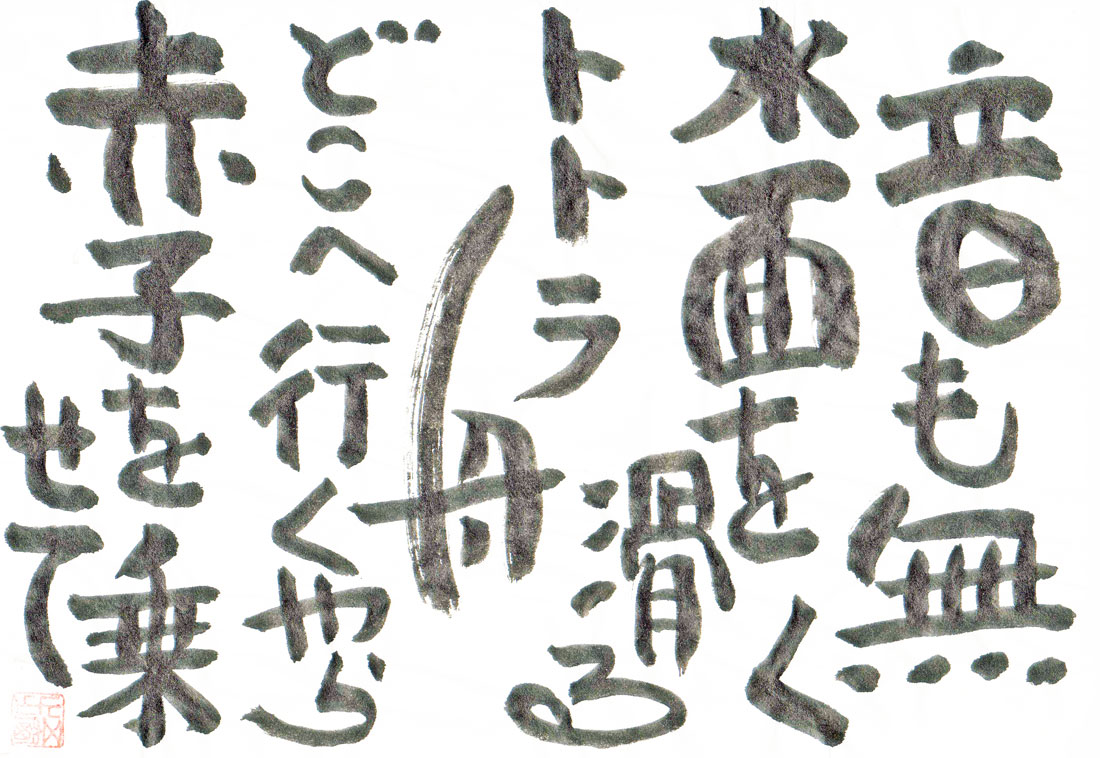 音も無く
水面を滑る
トトラ舟
どこへ行くやら
赤子を乗せて